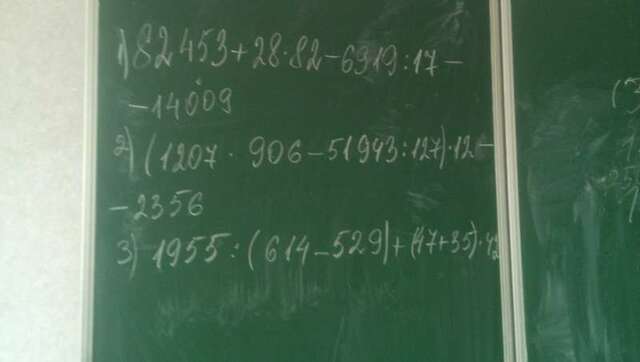 1) 82453+28·82-6919:17-
-14009
2) (1207 · 906-51943:127)·12-
-2356
3) 1955:(614-529)+(47+35)·42